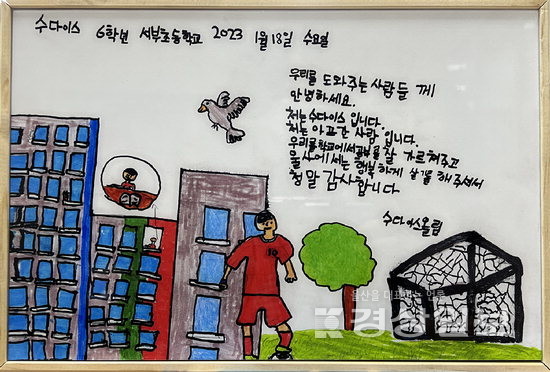 수다이스 6학년 서부초등학교 2023 1월 18일 수요일
우리를 도와주는 사람들 께
안녕하세요.
저는 수다이스 입니다.
저는 아프간 사람 입니다.
우리를 학교에서 공부를 잘 가르쳐주고
울산에서는 행복하게 살기를 해 주셔서
정말 감사합니다
수다이스올림
10
울산을 대표하는 언론
경상일보